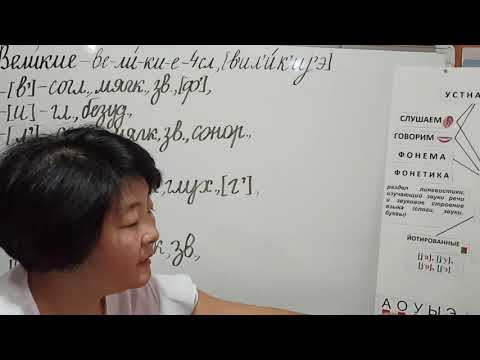 Великие - ве-ли́-ки-е - 4сл, [вил'и́к'иj'э]
-[в'] - согл., мягк., зв., [ф'],
-[и] - гл., безуд.,
-[л'] мягк., зв., сонор.,
глух., [г'],
зв,
УСТНА
СЛУШАЕМ
ГОВОРИМ
ФОНЕМА
ФОНЕТИКА
раздел лингвистики,
изучающий звуки речи
и звуковое строение
языка (слоги, звуки,
буквы)
ЙОТИРОВАННЫЕ
А О У Ы Э